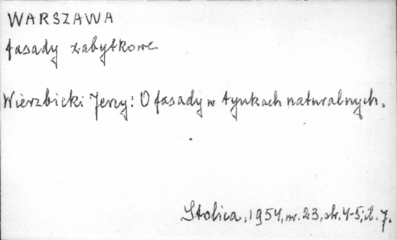 WARSZAWA
fasady zabytkowe
Wierzbicki Jerzy: O fasady w tynkach naturalnych.
Stolica, 1954, nr. 23, str. 4-5, il. 7.